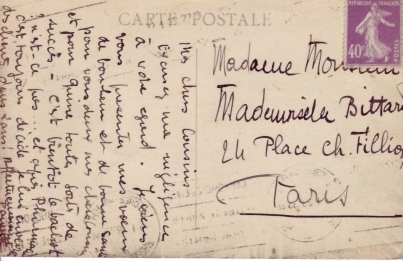 CARTE POSTALE
40c
Mes chers Cousins
Excusez ma négligence
à votre égard. Je viens
vous présenter mes vœux
de bonheur et de bonne santé
pour vous deux mes chers
et pour toute sorte de
succès - c'est bientôt le bachot
n'est-ce pas. et après
c'est toujours décidé
des deux
Madame
Mademoiselle Bittar
24 Place Ch. Fillion
Paris